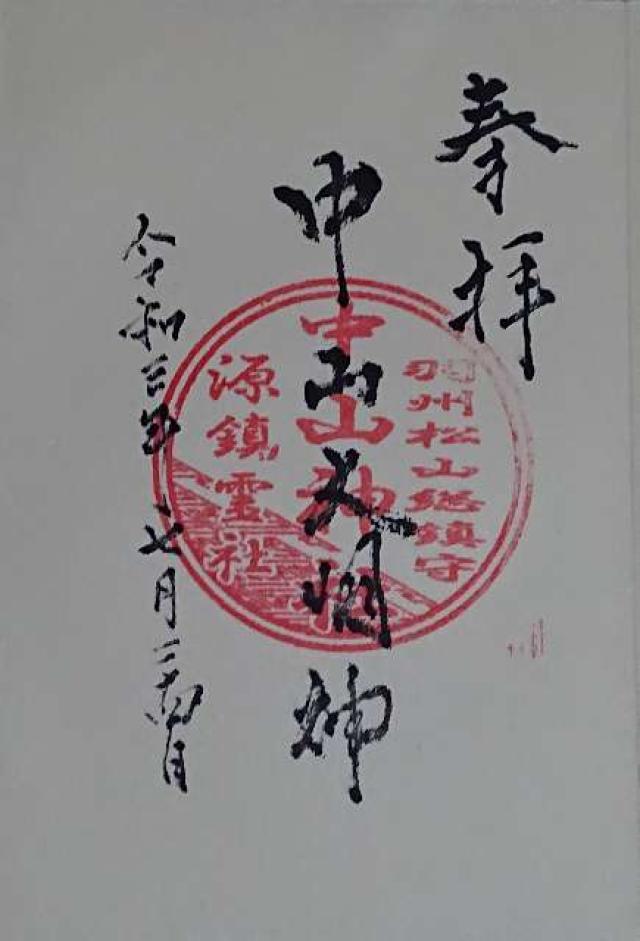 奉拝
羽州松山総鎮守
中山大明神
中山神社
源鎮霊社
令和三年七月二十四日